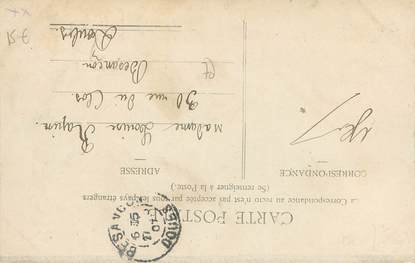 CARTE POSTALE
La Correspondance au recto n'est pas acceptée par tous les pays étrangers
(Se renseigner à la Poste.)
CORRESPONDANCE
ADRESSE
Madame Louise
30 rue du Clos.
Besançon
Doubs.
BESANÇON
DOUBS